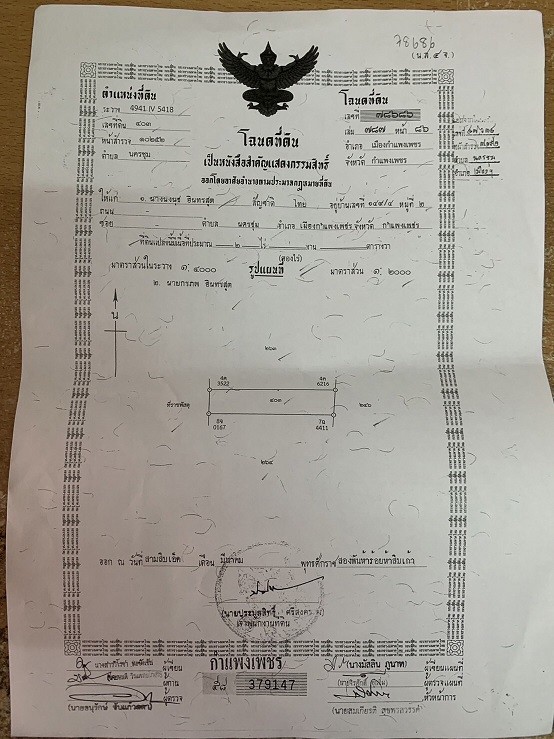 78686
(น.ส.๔ จ.)
ตำแหน่งที่ดิน
ระวาง 4941 IV 5418
เลขที่ดิน ๔๐๓
หน้าสำรวจ ๑๐๒๕๒
ตำบล นครชุม
โฉนดที่ดิน
เลขที่ ๗๘๖๘๖
เล่ม ๗๘๗ หน้า ๘๖
อำเภอ เมืองกำแพงเพชร
จังหวัด กำแพงเพชร
โฉนดที่ดิน
เป็นหนังสือสำคัญแสดงกรรมสิทธิ์
ออกโดยอาศัยอำนาจตามประมวลกฎหมายที่ดิน
ให้แก่ ๑. นางนงนุช อินทรสุด สัญชาติ ไทย อยู่บ้านเลขที่ ๑๔๙/๔ หมู่ที่ ๒
ถนน
ซอย ตำบล นครชุม อำเภอ เมืองกำแพงเพชร จังหวัด กำแพงเพชร
ที่ดินแปลงนี้มีเนื้อที่ประมาณ ๒ ไร่ งาน ตารางวา
(สองไร่)
มาตราส่วนในระวาง ๑:๔๐๐๐ รูปแผนที่ มาตราส่วน ๑:๒๐๐๐
๒. นายกรภพ อินทรสุด
น
๒๖๓
4ค 3522
4ค 6216
ที่ราชพัสดุ
๔๐๓
๒๔๐
8จ 0167
7ฉ 4411
๒๖๔
ออก ณ วันที่ สามสิบเอ็ด เดือน มีนาคม พุทธศักราช สองพันห้าร้อยห้าสิบเก้า
เจ้าพนักงานที่ดิน
กำแพงเพชร
๕๘ 379147
ผู้เขียน
ผู้ทาน
ผู้ตรวจ
(นางมัสลิน ภูนาท) ผู้เขียนแผนที่
ผู้ตรวจแผนที่
หัวหน้าการ